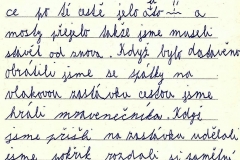 ce po té cestě jelo auto jí a
mosty přejelo takže jsme museli
stavět od znova. Když bylo dostavěno
obrátili jsme se zpátky na
vlakovou zastávku cestou jsme
hráli mravenečníka. Když
jsme přišli na zastávku udělali
jsme pokřik rozdali si pamětní